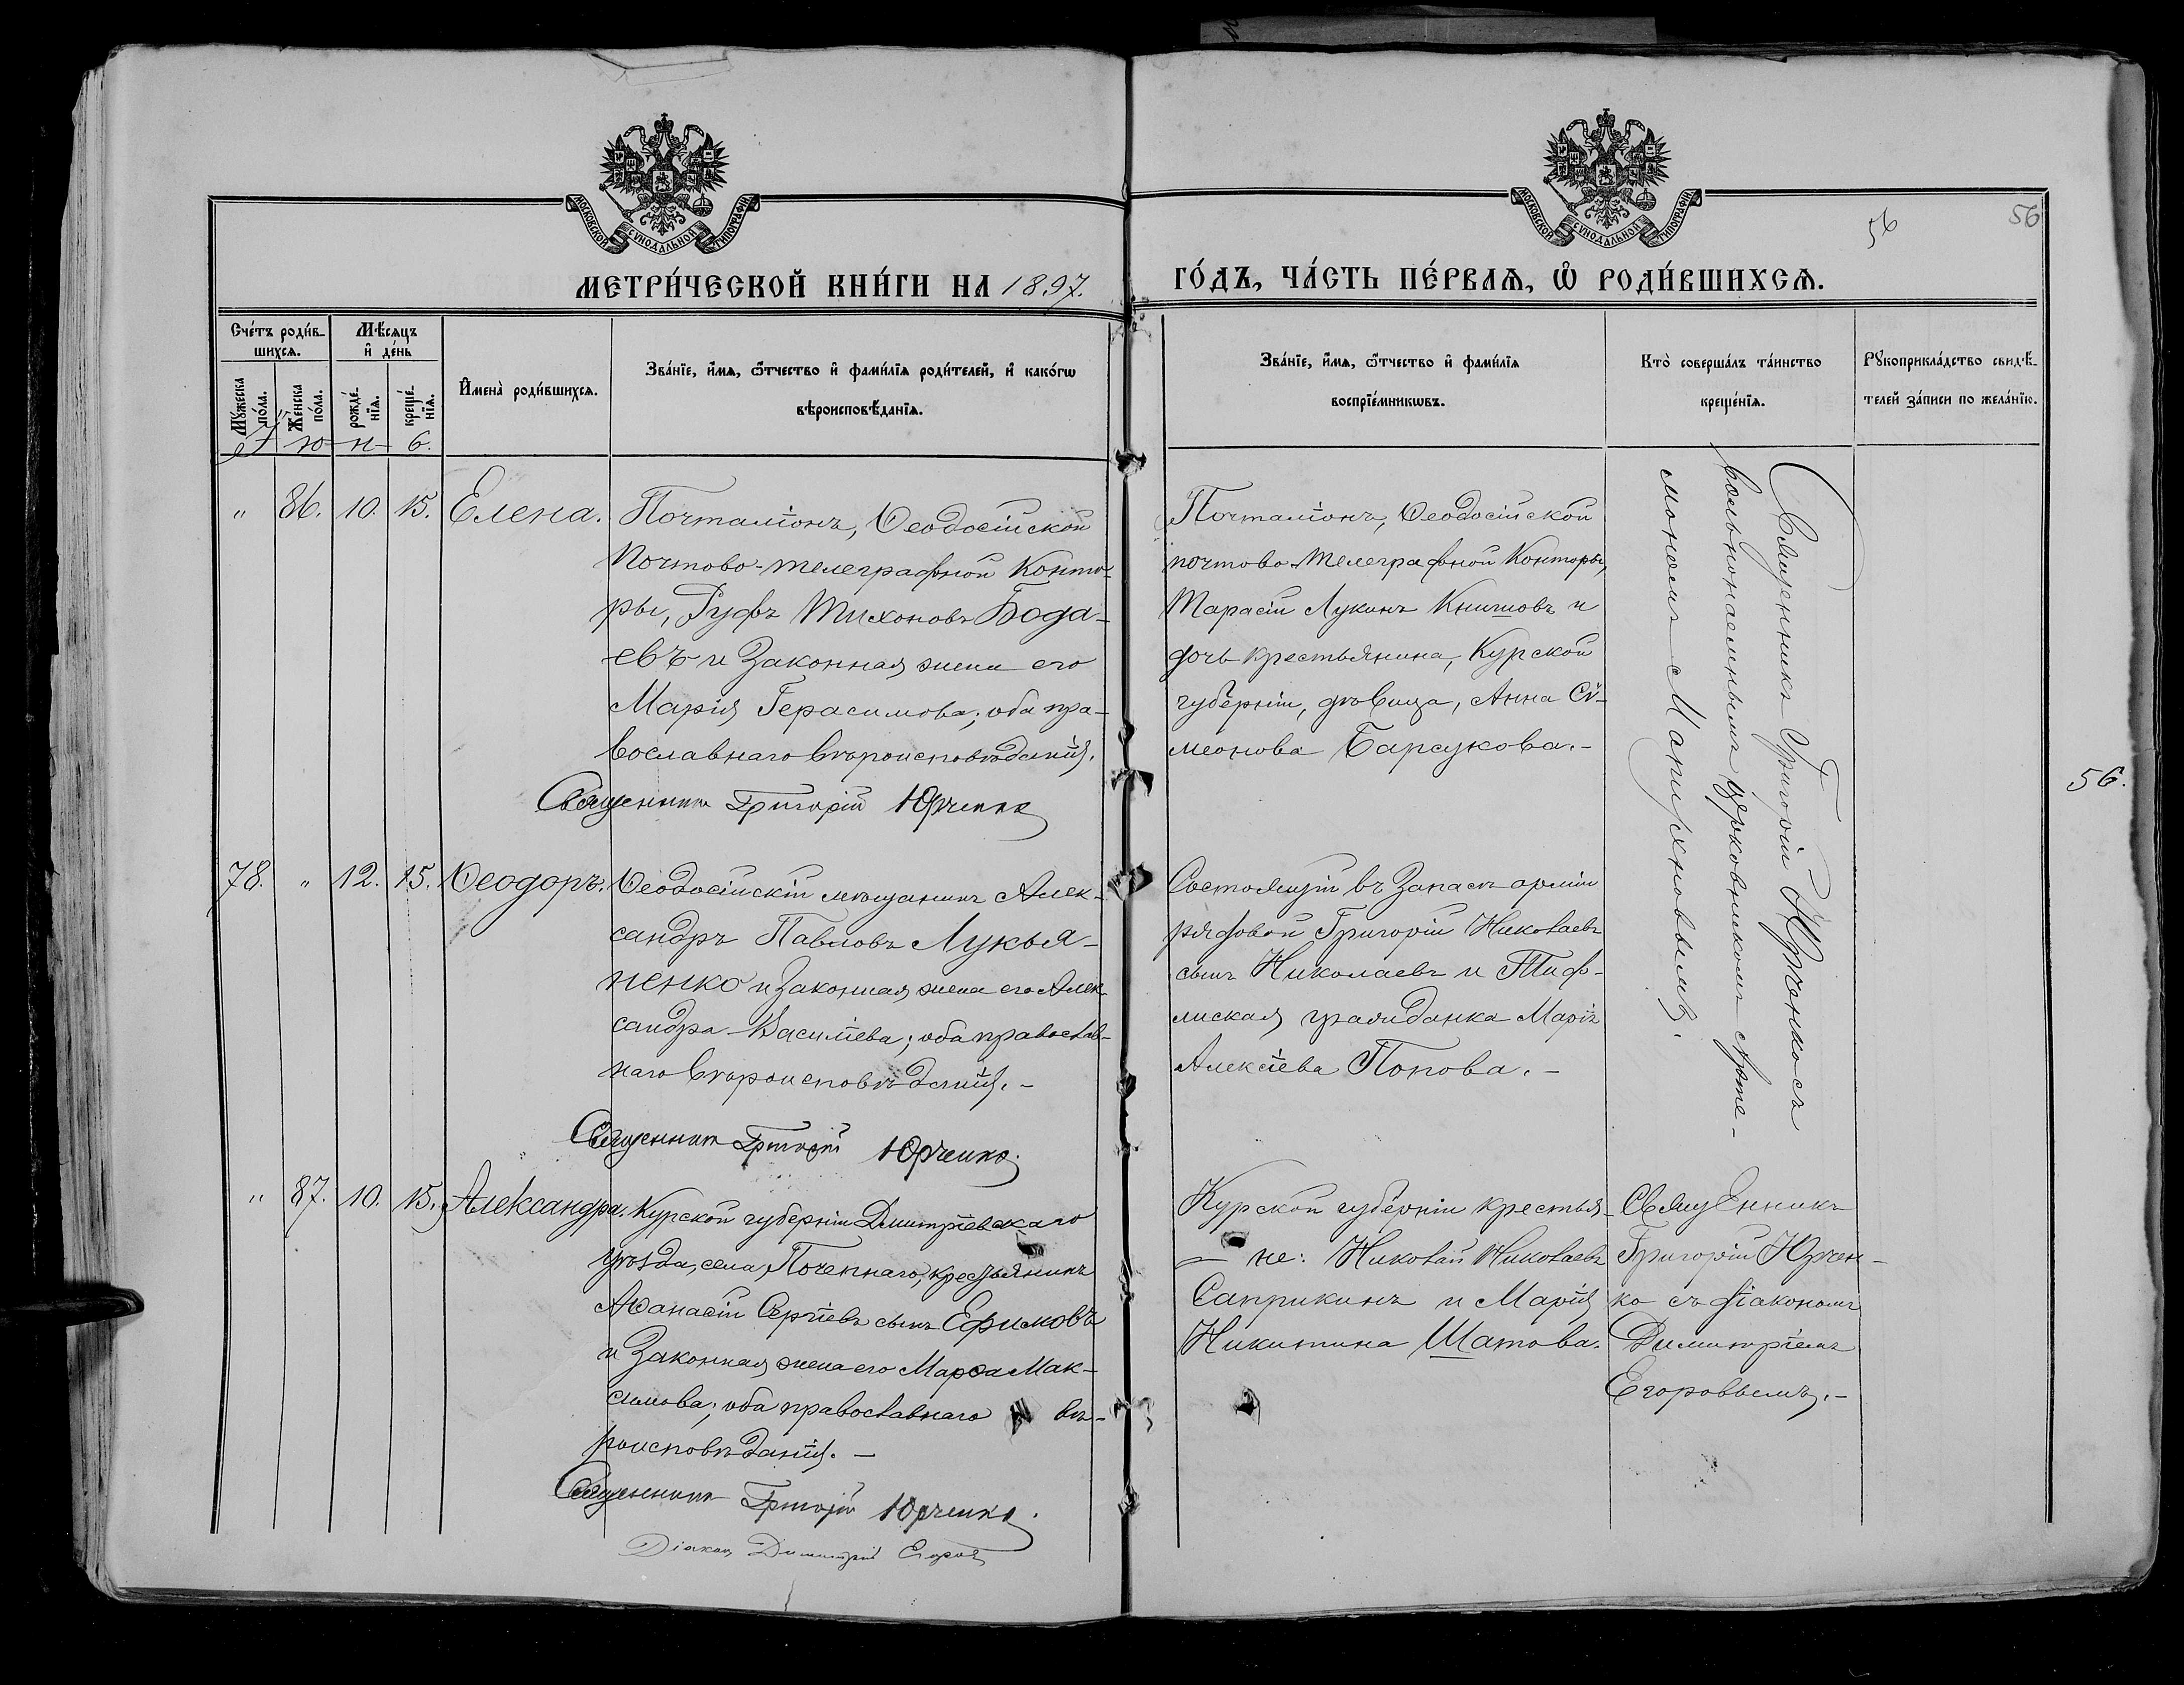 МОСКОВСКОЙ СУНОДАЛЬНОЙ ТИПОГРАФІИ
МОСКОВСКОЙ СУНОДАЛЬНОЙ ТИПОГРАФІИ
56
56
МЕТРИ́ЧЕСКОЙ КНИ́ГИ НА 1897.
ГО́ДЪ, ЧА́СТЬ ПЕ́РВАѦ, Ѡ҆ РОДИ́ВШИХСѦ.
Сче́тъ роди́в-
шихсѧ.
Мѣ́сѧцъ
и҆ де́нь
Мꙋ́жеска по́ла.
Же́нска по́ла.
рожде́-
нїѧ.
креще́-
нїѧ.
И҆мена̀ роди́вшихсѧ.
Зва́нїе, и҆́мѧ, ѻ҆́тчество и҆ фами́лїѧ роди́телей, и҆ како́гѡ
вѣроисповѣ́данїѧ.
Зва́нїе, и҆́мѧ, ѻ҆́тчество и҆ фами́лїѧ
воспрїе́мникѡвъ.
Кто̀ соверша́лъ та́инство
креще́нїѧ.
Рꙋкоприкла́дство свидѣ́-
телей за́писи по жела́нїю.
І ю н 6.
" 86. 10. 15. Елена.
Почталіонъ, Ѳеодосійской
почтово-телеграфной Конто-
ры, Руфъ Тихоновъ Бода-
евъ и законная жена его
Марія Герасимова; оба пра-
вославнаго вѣроисповѣданія.
Священникъ Григорій Юрченко
Почталіонъ, Ѳеодосійской
почтово-телеграфной Конторы,
Тарасій Лукинъ Книшовъ и
дочь крестьянина, Курской
губерніи, дѣвица, Анна Сѵ-
меонова Барсукова.-
Священникъ Григорій Юрченко съ
вольнонаемнымъ церковникомъ Арте-
мономъ Мапирхновымъ.
56.
78. " 12. 15. Ѳеодоръ.
Ѳеодосійскій мѣщанинъ Алек-
сандръ Павловъ Лукья-
ненко и законная жена его Алек-
сандра Василіева; оба православ-
наго вѣроисповѣданія.-
Священникъ Григорій Юрченко.
Состоящій въ запасѣ арміи
рядовой Григорій Николаевъ
сынъ Николаевъ и Тиф-
лиская гражданка Марія
Алексіева Попова.-
" 87. 10. 15. Александра.
Курской губерніи Дмитріевскаго
уѣзда, села Почепнаго, крестьянинъ
Аѳанасій Сергіевъ сынъ Ефимовъ
и законная жена его Марѳа Мак-
симова; оба православнаго вѣ-
роисповѣданія.-
Священникъ Григорій Юрченко.
Діаконъ Димитрій Егоровъ
Курской губерніи крестья-
не: Николай Николаевъ
Саприкинъ и Марія
Никитина Шатова.
Священникъ
Григорій Юрчен-
ко съ діакономъ
Димитріемъ
Егоровымъ.-